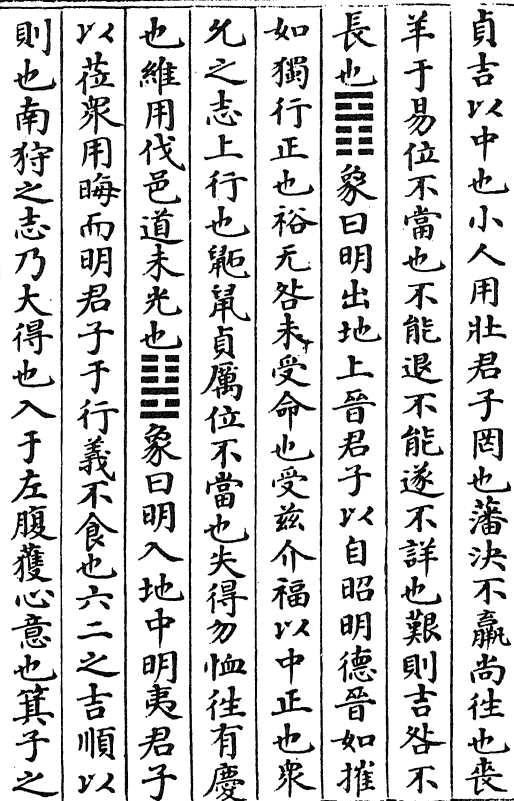 貞吉以中也小人用壯君子罔也藩決不羸尚徃也喪
羊于易位不當也不能退不能遂不詳也艱則吉咎不
長也䷢象曰明出地上晉君子以自昭明德晉如摧
如獨行正也裕无咎未受命也受兹介福以中正也衆
允之志上行也鼫鼠貞厲位不當也失得勿恤徃有慶
也維用伐邑道未光也䷣象曰明入地中明夷君子
以莅衆用晦而明君子于行義不食也六二之吉順以
則也南狩之志乃大得也入于左腹獲心意也箕子之